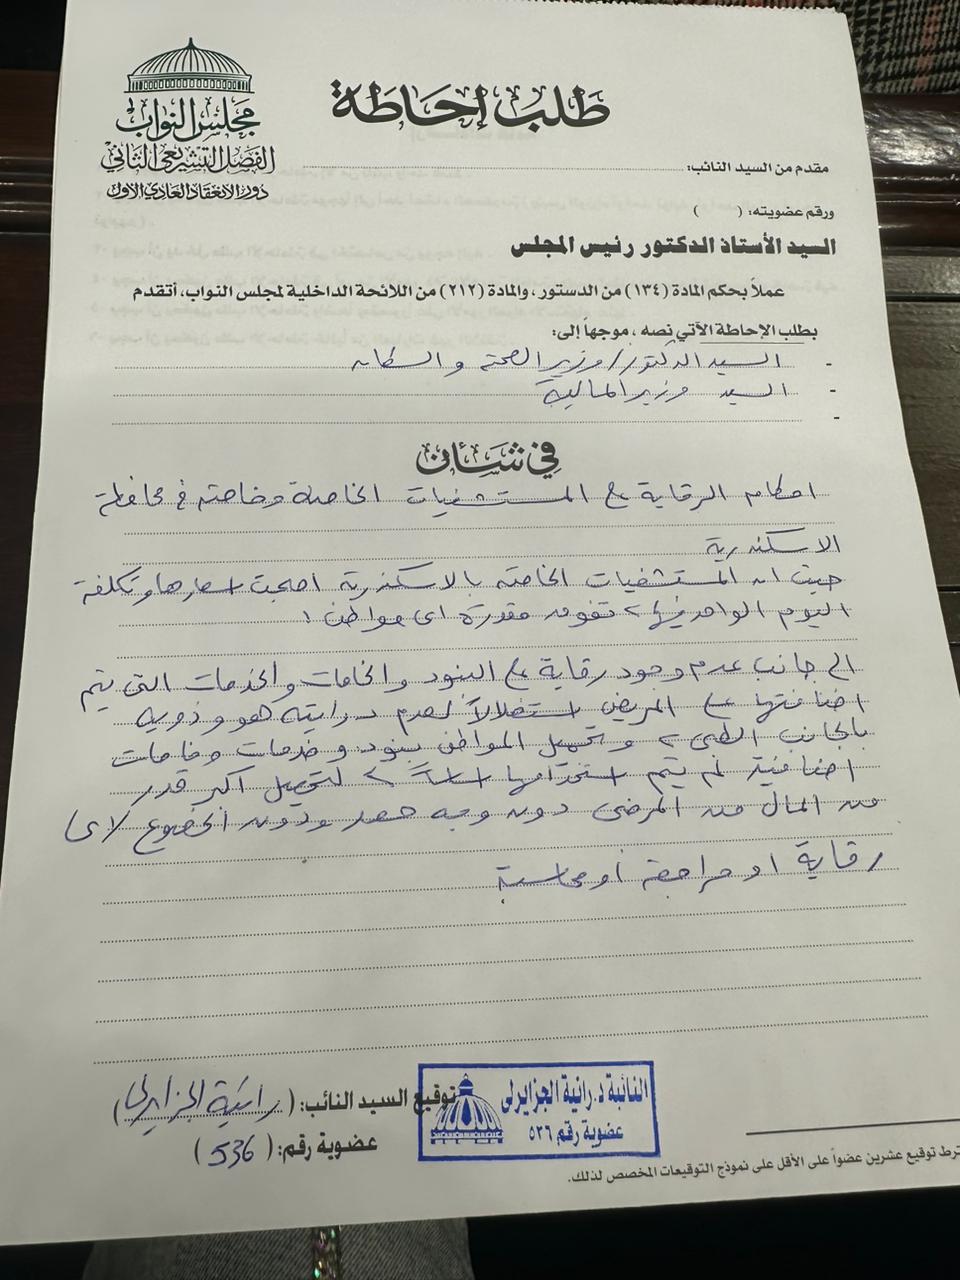 مجلس النواب
الفصل التشريعى الثانى
دور الانعقاد العادى الأول
طلب إحاطة
مقدم من السيد النائب:
ورقم عضويته: ( )
السيد الأستاذ الدكتور رئيس المجلس
عملاً بحكم المادة (١٣٤) من الدستور، والمادة (٢١٢) من اللائحة الداخلية لمجلس النواب، أتقدم
بطلب الإحاطة الآتي نصه، موجهاً إلى:
- السيد الدكتور/ وزير الصحة والسكان
- السيد وزير المالية
-
في شأن
احكام الرقابة على المستشفيات الخاصة وخاصته في محافظة
الاسكندرية
حيث ان المستشفيات الخاصه بالاسكندرية اصبحت اسعارها وتكلفة
اليوم الواحد فيها تفوق مقدرة اى مواطن !
الى جانب عدم وجود رقابة على البنود والخامات والخدمات التى يتم
اضافتها على المريض استغلالاً لعدم درايته هو وذويه
بالجانب الطبى ، وتحميل المواطن بنود وخدمات وخامات
اضافية لم يتم استخدامها اساساً ، لتحصيل اكبر قدر
من المال من المرضى دون وجه حق ودون الخضوع لاى
رقابة او مراجعة أو محاسبة
توقيع السيد النائب: (رانية الجزايرلى)
عضوية رقم: (536)
النائبة د.رانية الجزايرلى
عضوية رقم ٥٣٦
ترط توقيع عشرين عضواً على الأقل على نموذج التوقيعات المخصص لذلك.